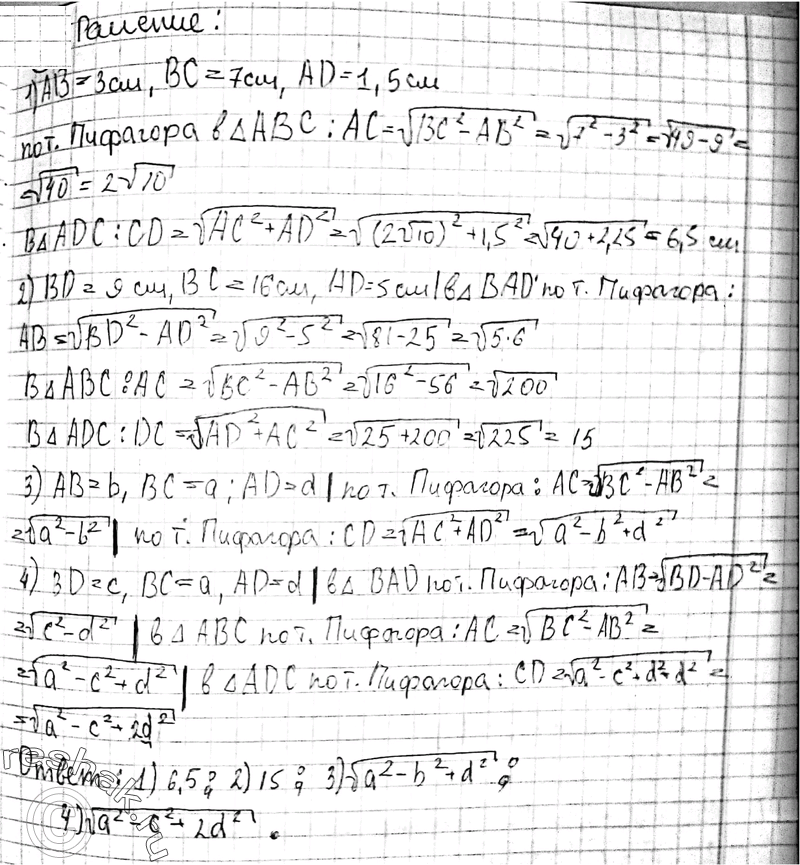 Решение:
1) AB = 3см, BC = 7см, AD = 1,5см
по т. Пифагора в △ABC: AC = √(BC² - AB²) = √(7² - 3²) = √(49 - 9) =
= √40 = 2√10
В △ADC: CD = √(AC² + AD²) = √((2√10)² + 1,5²) = √(40 + 2,25) = 6,5 см
2) BD = 9 см, BC = 16см, AD = 5см | в △ BAD по т. Пифагора:
AB = √(BD² - AD²) = √(9² - 5²) = √(81 - 25) = √5·6
В △ABC: AC = √(BC² - AB²) = √(16² - 56) = √200
В △ADC: DC = √(AD² + AC²) = √(25 + 200) = √225 = 15
3) AB = b, BC = a; AD = d | по т. Пифагора: AC = √(BC² - AB²) =
= √(a² - b²) | по т. Пифагора: CD = √(AC² + AD²) = √(a² - b² + d²)
4) BD = c, BC = a, AD = d | в △ BAD по т. Пифагора: AB = √(BD - AD²) =
= √(c² - d²) | в △ ABC по т. Пифагора: AC = √(BC² - AB²) =
= √(a² - c² + d²) | в △ADC по т. Пифагора: CD = √(a² - c² + d² + d²) =
= √(a² - c² + 2d²)
Ответ: 1) 6,5; 2) 15; 3) √(a² - b² + d²);
4) √(a² - c² + 2d²).
reshak.ru